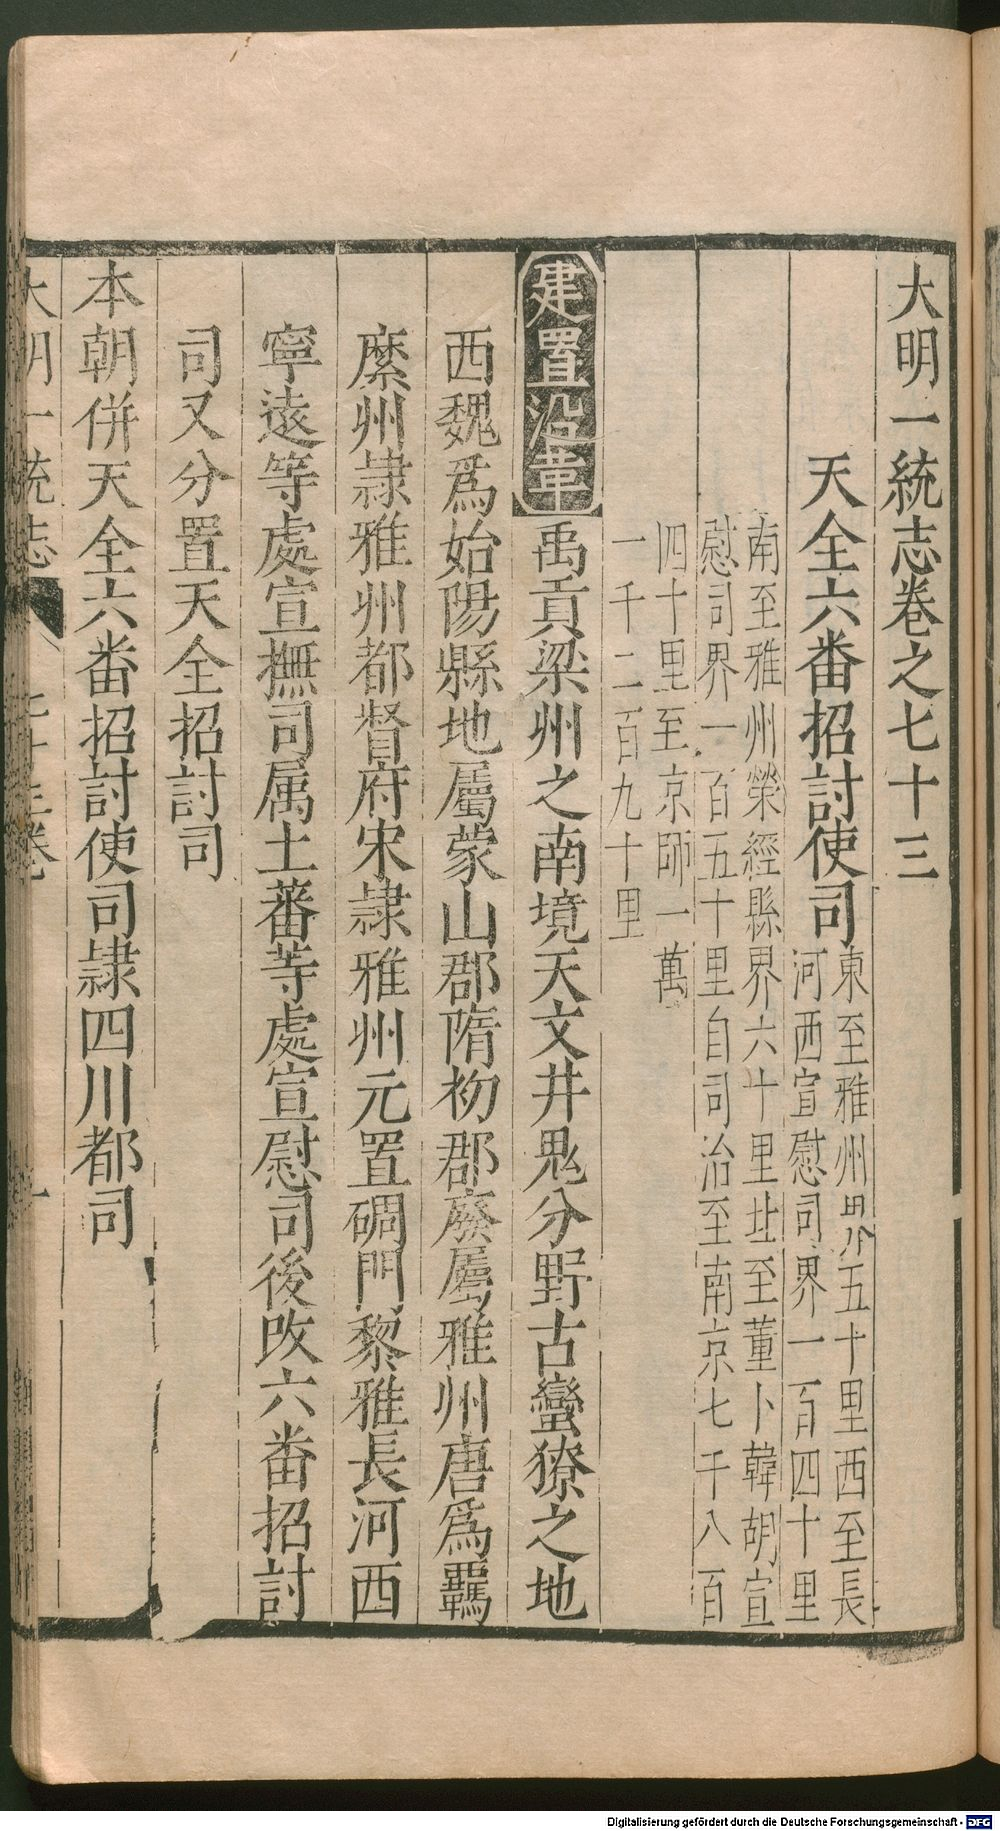 大明一統志卷之七十三
天全六番招討使司
東至雅州界五十里西至長
河西宣慰司界一百四十里
南至雅州榮經縣界六十里北至董卜韓胡宣
慰司界一百五十里自司治至南京七千八百
四十里至京師一萬
一千二百九十里
建置沿革
禹貢梁州之南境天文井鬼分野古蠻獠之地
西魏爲始陽縣地屬蒙山郡隋初郡廢屬雅州唐爲羈
縻州隷雅州都督府宋隷雅州元置碉門黎雅長河西
寧遠等處宣撫司属土蕃等處宣慰司後改六番招討
司又分置天全招討司
本朝併天全六番招討使司隷四川都司
大明一統志
七十三卷
一
Digitalisierung gefördert durch die Deutsche Forschungsgemeinschaft - DFG